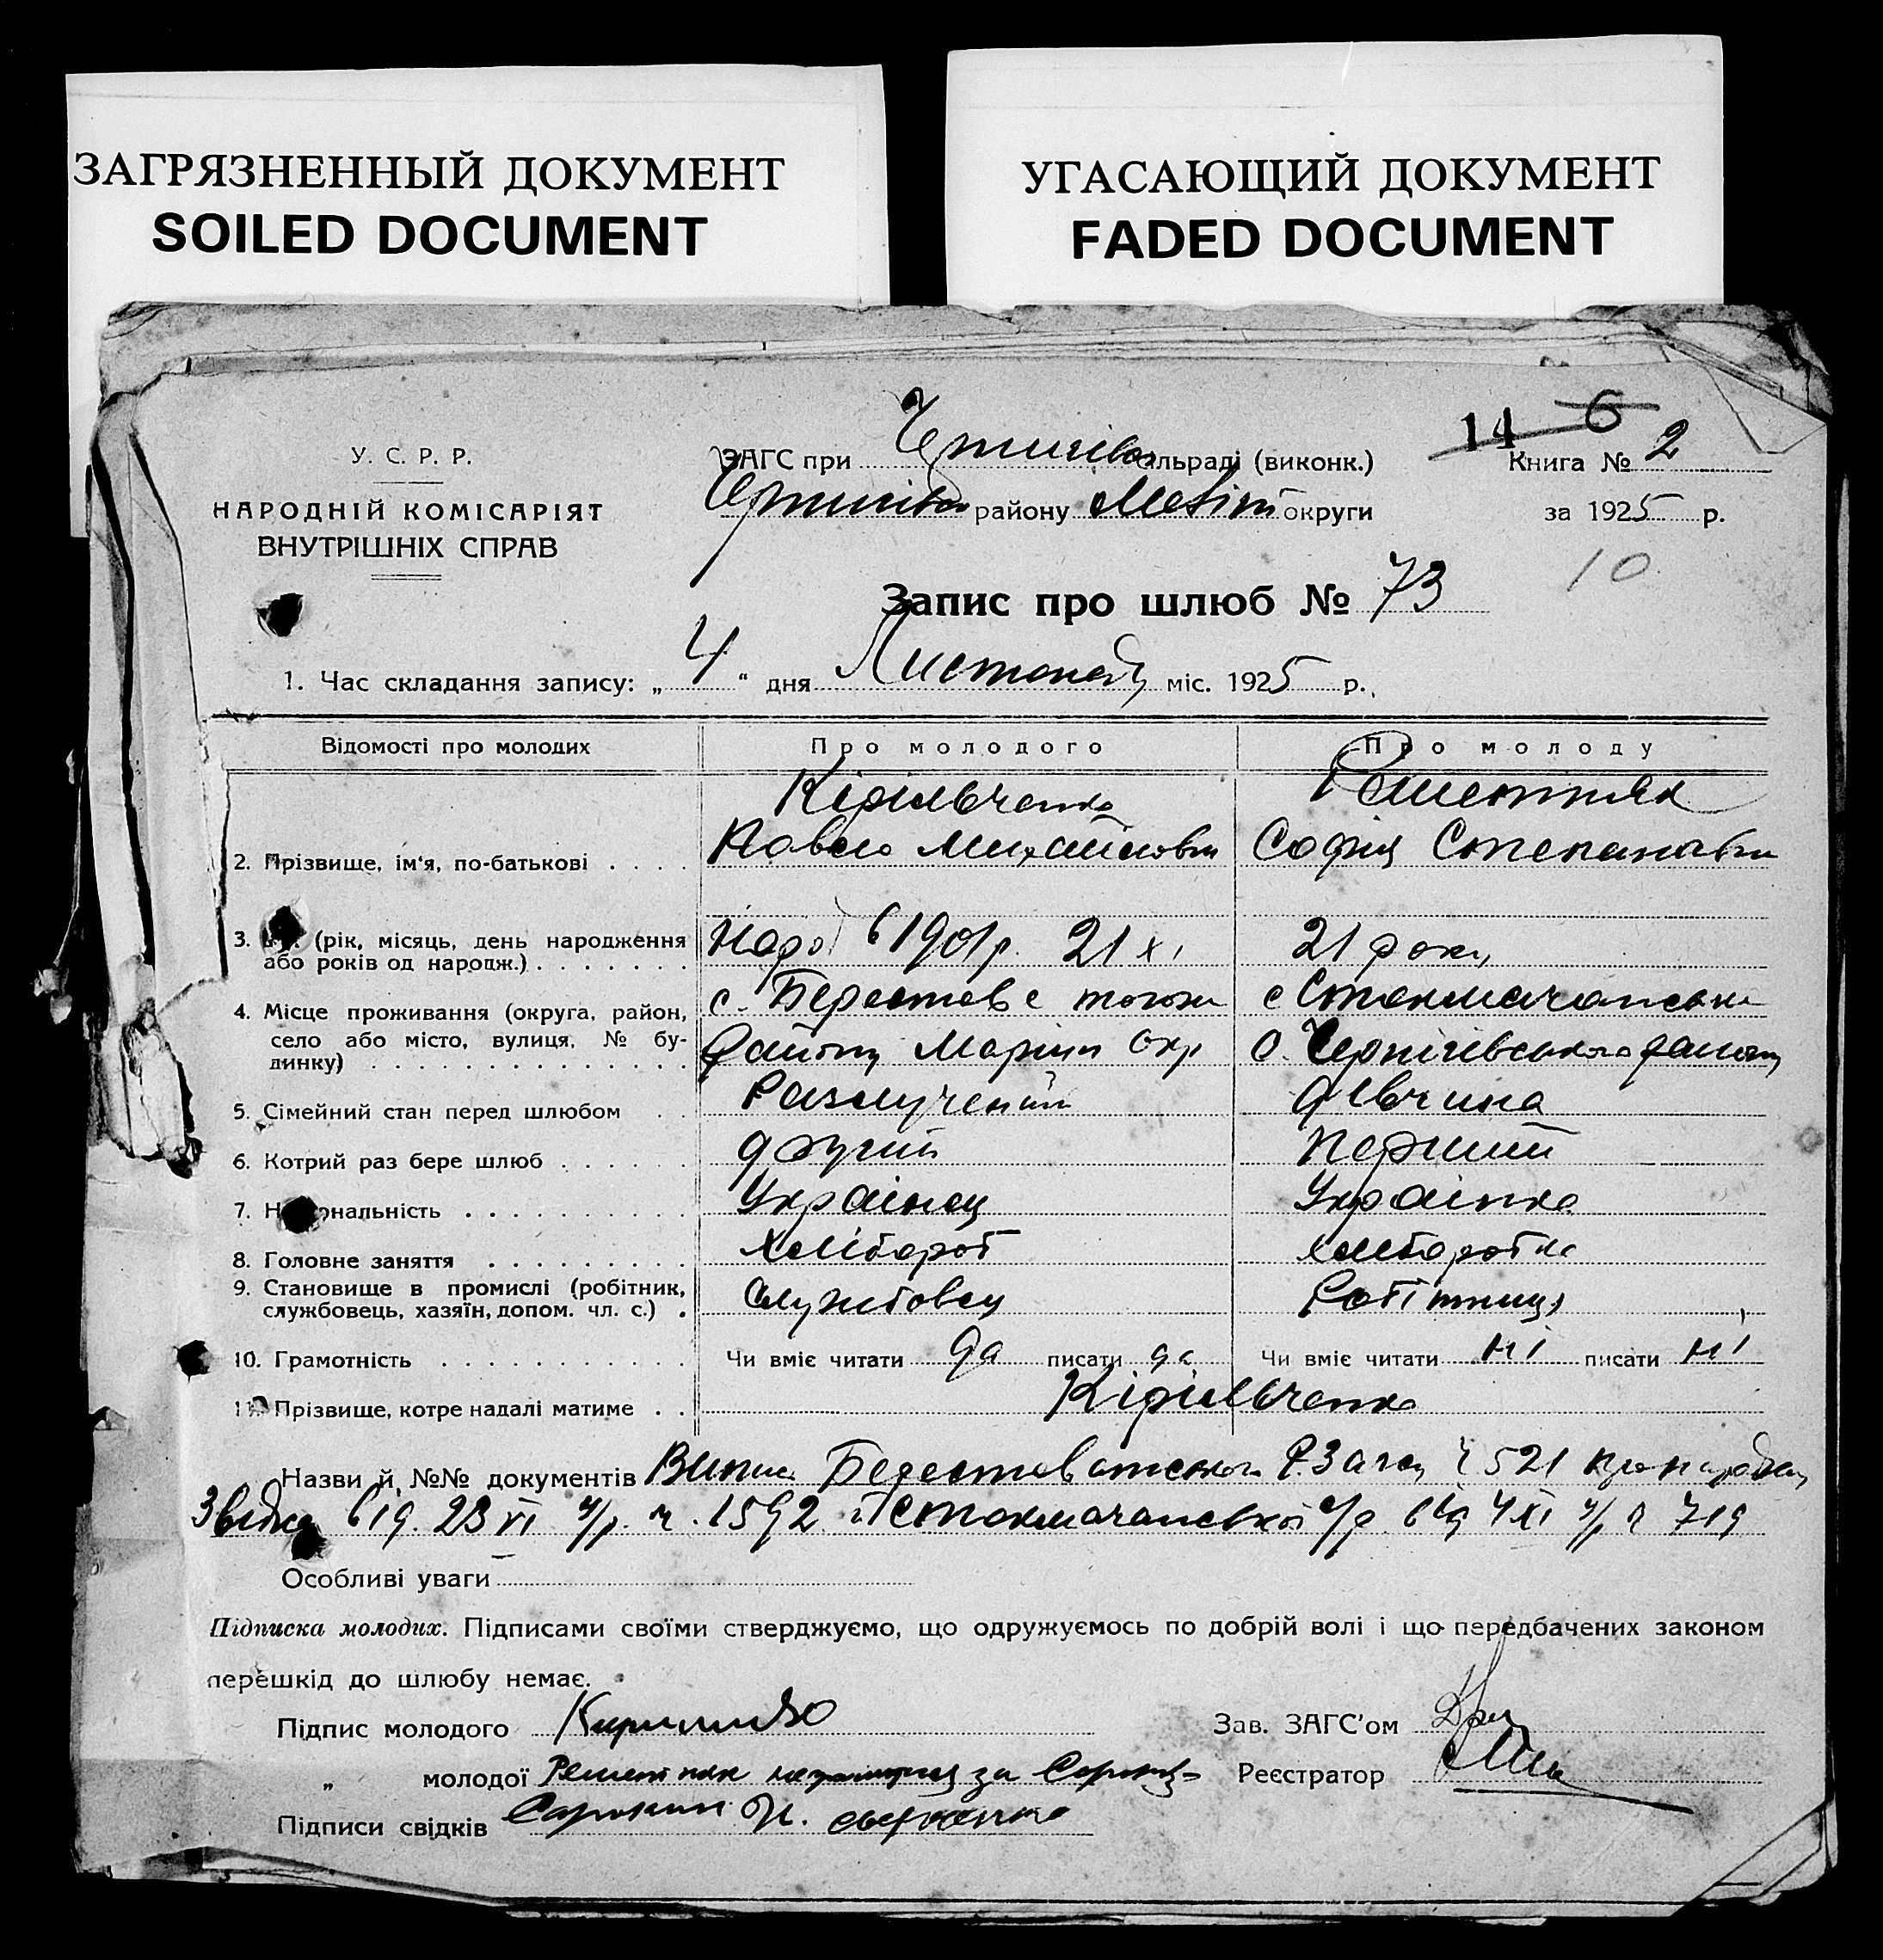 ЗАГРЯЗНЕННЫЙ ДОКУМЕНТ
SOILED DOCUMENT
УГАСАЮЩИЙ ДОКУМЕНТ
FADED DOCUMENT
14 6
У. С. Р. Р.
НАРОДНІЙ КОМІСАРІЯТ
ВНУТРІШНІХ СПРАВ
ЗАГС при сільраді (виконк.)
району Меліт округи
Книга № 2
за 1925 р.
10
Запис про шлюб № 73
1. Час складання запису: „ 4 " дня Листопад міс. 1925 р.
Відомості про молодих Про молодого Про молоду
2. Прізвище, ім'я, по-батькові . . . . Павло Михайлович Софія Степановна
3. (рік, місяць, день народження або років од народж.) . . . . . . . 1901р. 21 XI 21 роки
4. Місце проживання (округа, район, село або місто, вулиця, № будинку) . . . . . . . . . . . . . . с. Берестове того ж району Маріуп Окр с Стокмачанська Чернігівського району
5. Сімейний стан перед шлюбом . . Разлучений дівчина
6. Котрий раз бере шлюб . . . . . . другий Перший
7. Національність . . . . . . . . . . Українец Українка
8. Головне заняття . . . . . . . . . хлібороб хліборобка
9. Становище в промислі (робітник, службовець, хазяїн, допом. чл. с.) . службовец Робітниця
10. Грамотність . . . . . . . . . . . Чи вміє читати да писати да Чи вміє читати ні писати ні
11. Прізвище, котре надалі матиме . . Кірільченко
Назви й №№ документів Випис Загса ч 521
від 23 XI ч. 1592 від 4 XI 719
Особливі уваги
Підписка молодих. Підписами своїми стверджуємо, що одружуємось по добрій волі і що передбачених законом
перешкід до шлюбу немає.
Підпис молодого
Зав. ЗАГС'ом
„ молодої за
Реєстратор
Підписи свідків